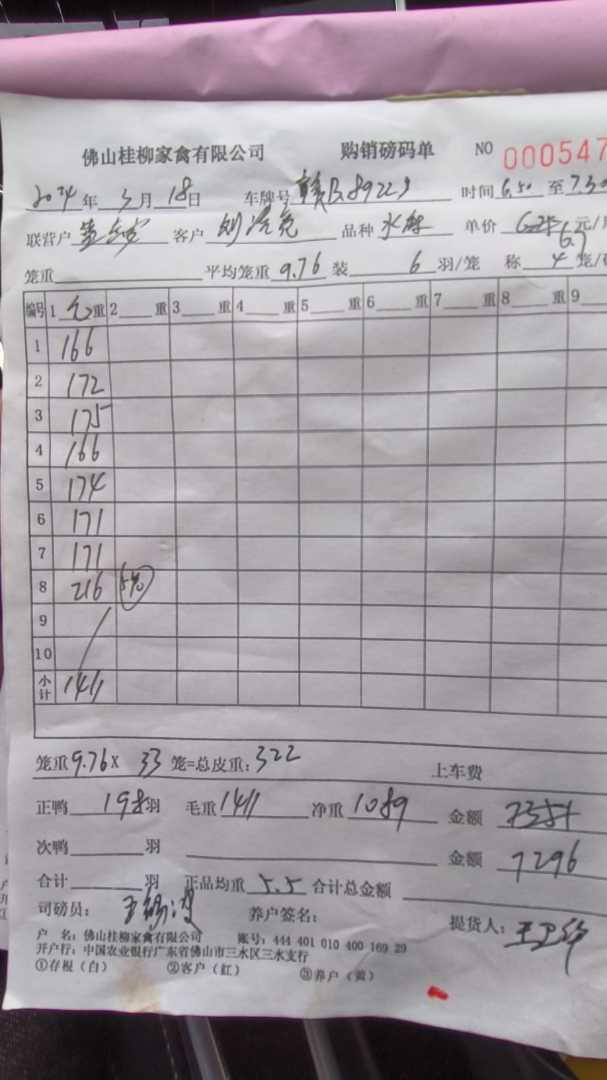 佛山桂柳家禽有限公司 购销磅码单 NO 000547
2024年 5月 18日 车牌号 赣B89229 时间 6.50 至 7.30
联营户 客户 品种 水鸭 单价 6.7 元/
笼重 平均笼重 9.76 装 6 羽/笼 称 4 笼/
编号 1 毛重 2 重 3 重 4 重 5 重 6 重 7 重 8 重 9
1 166
2 172
3 175
4 166
5 174
6 171
7 171
8 216 5笼
9
10
小计 1411
笼重9.76 X 33 笼=总皮重: 322 上车费
正鸭 198羽 毛重1411 净重1089 金额
次鸭 羽 金额 7296
合计 羽 正品均重 5.5 合计总金额
司磅员: 养户签名: 提货人:
户 名: 佛山桂柳家禽有限公司 账号: 444 401 010 400 169 29
开户行: 中国农业银行广东省佛山市三水区三水支行
①存根（白） ②客户（红） ③养户（黄）